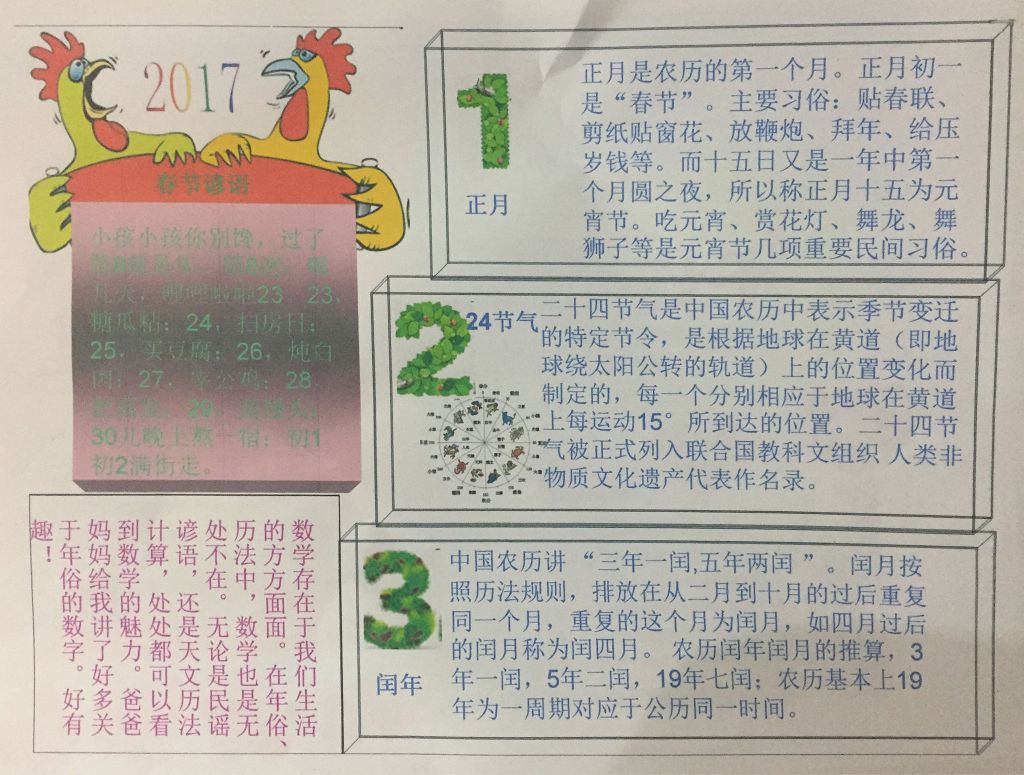 2017
春节谚语
小孩小孩你别馋，过了
几天，哩哩啦啦23 23，
糖瓜粘；24，扫房日；
25，买豆腐；26，炖白
肉；27，宰公鸡；28，
30儿晚上熬一宿；初1
初2满街走。
1
正月
正月是农历的第一个月。正月初一
是“春节”。主要习俗：贴春联、
剪纸贴窗花、放鞭炮、拜年、给压
岁钱等。而十五日又是一年中第一
个月圆之夜，所以称正月十五为元
宵节。吃元宵、赏花灯、舞龙、舞
狮子等是元宵节几项重要民间习俗。
2
24节气
二十四节气是中国农历中表示季节变迁
的特定节令，是根据地球在黄道（即地
球绕太阳公转的轨道）上的位置变化而
制定的，每一个分别相应于地球在黄道
上每运动15°所到达的位置。二十四节
气被正式列入联合国教科文组织 人类非
物质文化遗产代表作名录。
3
闰年
中国农历讲 “三年一闰,五年两闰 ”。闰月按
照历法规则，排放在从二月到十月的过后重复
同一个月，重复的这个月为闰月，如四月过后
的闰月称为闰四月。 农历闰年闰月的推算，3
年一闰，5年二闰，19年七闰；农历基本上19
年为一周期对应于公历同一时间。
数学存在于我们生活
的方方面面。在年俗、
历法中，数学也是无
处不在。无论是民谣
谚语，还是天文历法
计算，处处都可以看
到数学的魅力。爸爸
妈妈给我讲了好多关
于年俗的数字。好有
趣！